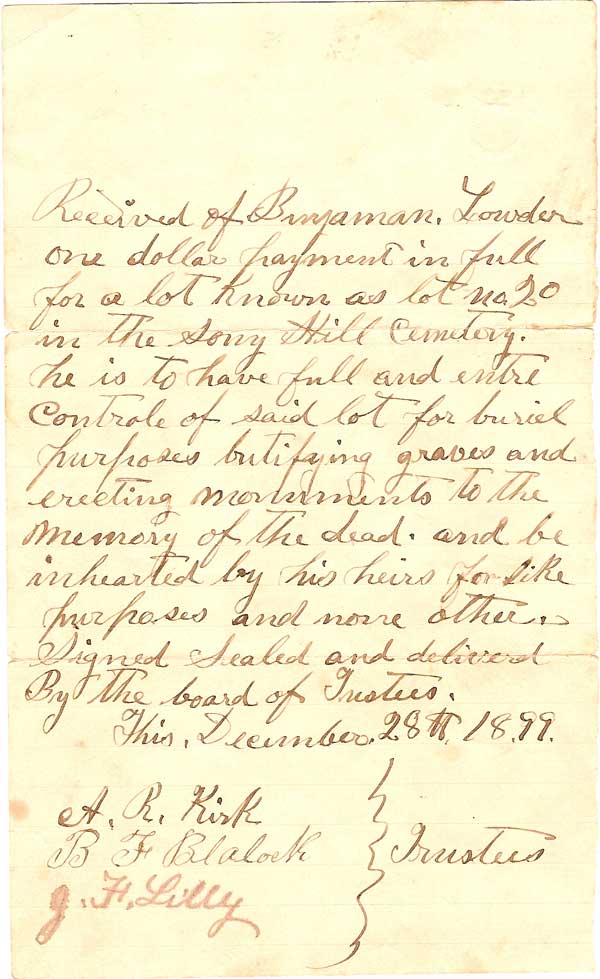 Received of Binyaman. Lowder
one dollar payment in full
for a lot known as lot no. 20
in the Sony Hill Cemetery.
he is to have full and entre
Controle of said lot for buriel
purposes butifying graves and
erecting monuments to the
Memory of the dead. and be
inhearted by his heirs for like
purposes and none other.
Signed Sealed and deliverd
By the board of Trustees.
This, December. 28th. 1899.
A. R. Kirk
B F Blalock
J. F. Lilly
Trustees